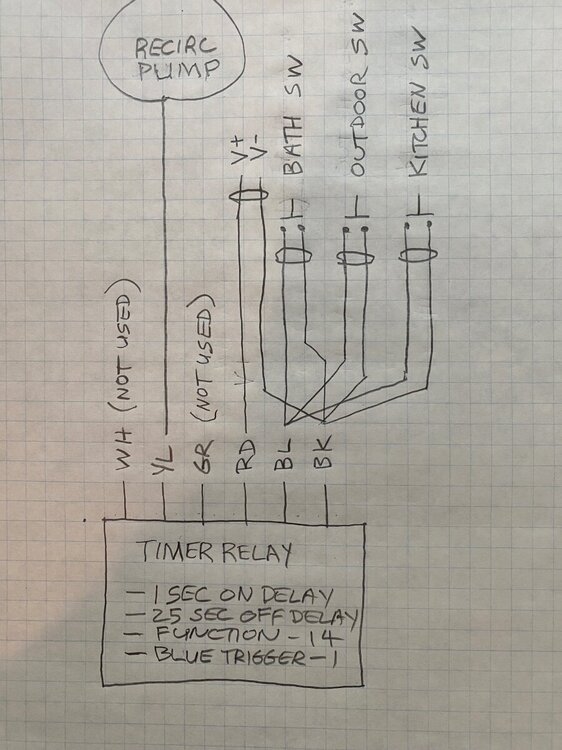 RECIRC
PUMP
V+
V-
BATH SW
OUTDOOR SW
KITCHEN SW
WH (NOT USED)
YL
GR (NOT USED)
RD
BL
BK
TIMER RELAY
- 1 SEC ON DELAY
- 25 SEC OFF DELAY
- FUNCTION - 14
- BLUE TRIGGER - 1